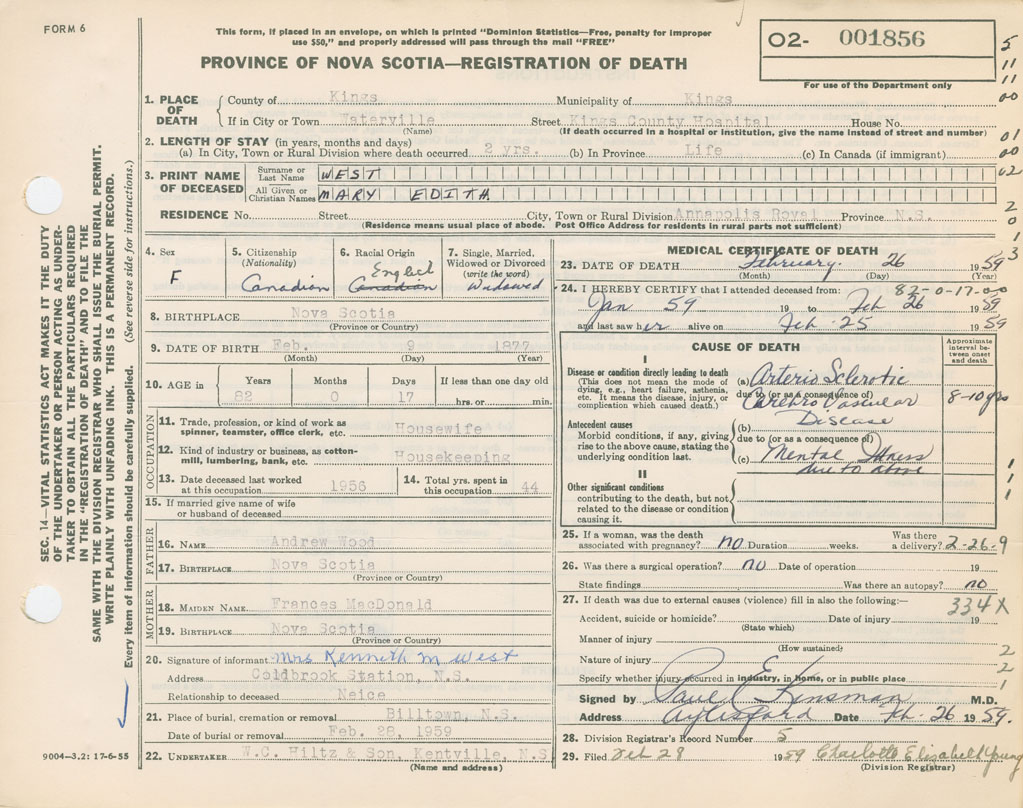 FORM 6
This form, if placed in an envelope, on which is printed "Dominion Statistics—Free, penalty for improper
use $50," and properly addressed will pass through the mail "FREE"
PROVINCE OF NOVA SCOTIA—REGISTRATION OF DEATH
O2- 001856
For use of the Department only
5
11
11
00
01
00
02
2
0
1
3
1. PLACE OF DEATH
County of Kings Municipality of Kings
If in City or Town Waterville Street Kings County Hospital House No.
(Name) (If death occurred in a hospital or institution, give the name instead of street and number)
2. LENGTH OF STAY (in years, months and days)
(a) In City, Town or Rural Division where death occurred 2 yrs. (b) In Province Life (c) In Canada (if immigrant)
3. PRINT NAME OF DECEASED
Surname or Last Name WEST
All Given or Christian Names MARY EDITH
RESIDENCE No. Street City, Town or Rural Division Annapolis Royal Province N.S.
(Residence means usual place of abode. Post Office Address for residents in rural parts not sufficient)
4. Sex F
5. Citizenship (Nationality) Canadian
6. Racial Origin English Canadian
7. Single, Married, Widowed or Divorced (write the word) Widowed
8. BIRTHPLACE Nova Scotia
(Province or Country)
9. DATE OF BIRTH Feb. 9 1877
(Month) (Day) (Year)
10. AGE in Years Months Days If less than one day old
82 0 17 hrs. or min.
OCCUPATION
11. Trade, profession, or kind of work as
spinner, teamster, office clerk, etc. Housewife
12. Kind of industry or business, as cotton-
mill, lumbering, bank, etc. Housekeeping
13. Date deceased last worked
at this occupation 1956
14. Total yrs. spent in
this occupation 44
15. If married give name of wife
or husband of deceased
FATHER
16. NAME Andrew Wood
17. BIRTHPLACE Nova Scotia
(Province or Country)
MOTHER
18. MAIDEN NAME Frances MacDonald
19. BIRTHPLACE Nova Scotia
(Province or Country)
20. Signature of informant Mrs Kenneth M West
Address Coldbrook Station, N.S.
Relationship to deceased Neice
21. Place of burial, cremation or removal Billtown, N.S.
Date of burial or removal Feb. 28, 1959
22. UNDERTAKER W.C. Hiltz & Son, Kentville, N.S
(Name and address)
MEDICAL CERTIFICATE OF DEATH
23. DATE OF DEATH February 26 1959
(Month) (Day) (Year)
82-0-17-00
24. I HEREBY CERTIFY that I attended deceased from:
Jan 59 19 to Feb 26 1959
and last saw her alive on Feb. 25 1959
CAUSE OF DEATH
Approximate interval between onset and death
I
Disease or condition directly leading to death
(This does not mean the mode of
dying, e.g., heart failure, asthenia,
etc. It means the disease, injury, or
complication which caused death.)
(a) Arterio Sclerotic
due to (or as a consequence of)
Cerebro Vascular
Disease
8-10 yrs
Antecedent causes
Morbid conditions, if any, giving
rise to the above cause, stating the
underlying condition last.
(b)
due to (or as a consequence of)
(c) Mental Illness
due to above
II
Other significant conditions
contributing to the death, but not
related to the disease or condition
causing it.
1
1
1
25. If a woman, was the death
associated with pregnancy? no Duration weeks. Was there
a delivery? 2-26-9
26. Was there a surgical operation? no Date of operation 19
State findings Was there an autopsy? no
27. If death was due to external causes (violence) fill in also the following:—
334X
Accident, suicide or homicide? Date of injury 19
(State which)
Manner of injury
(How sustained)
2
Nature of injury
2
Specify whether injury occurred in industry, in home, or in public place
1
Signed by Paul E Kinsman M.D.
Address Aylesford Date Feb. 26 1959.
28. Division Registrar's Record Number 5
29. Filed Feb 28 1959 Charlotte Elizabeth Young
(Division Registrar)
SEC. 14—VITAL STATISTICS ACT MAKES IT THE DUTY
OF THE UNDERTAKER OR PERSON ACTING AS UNDER-
TAKER TO OBTAIN ALL THE PARTICULARS REQUIRED
IN THE "REGISTRATION OF DEATH" AND TO FILE THE
SAME WITH THE DIVISION REGISTRAR WHO SHALL ISSUE THE BURIAL PERMIT.
WRITE PLAINLY WITH UNFADING INK. THIS IS A PERMANENT RECORD.
Every item of information should be carefully supplied. (See reverse side for instructions.)
9004—3.2: 17-6-55